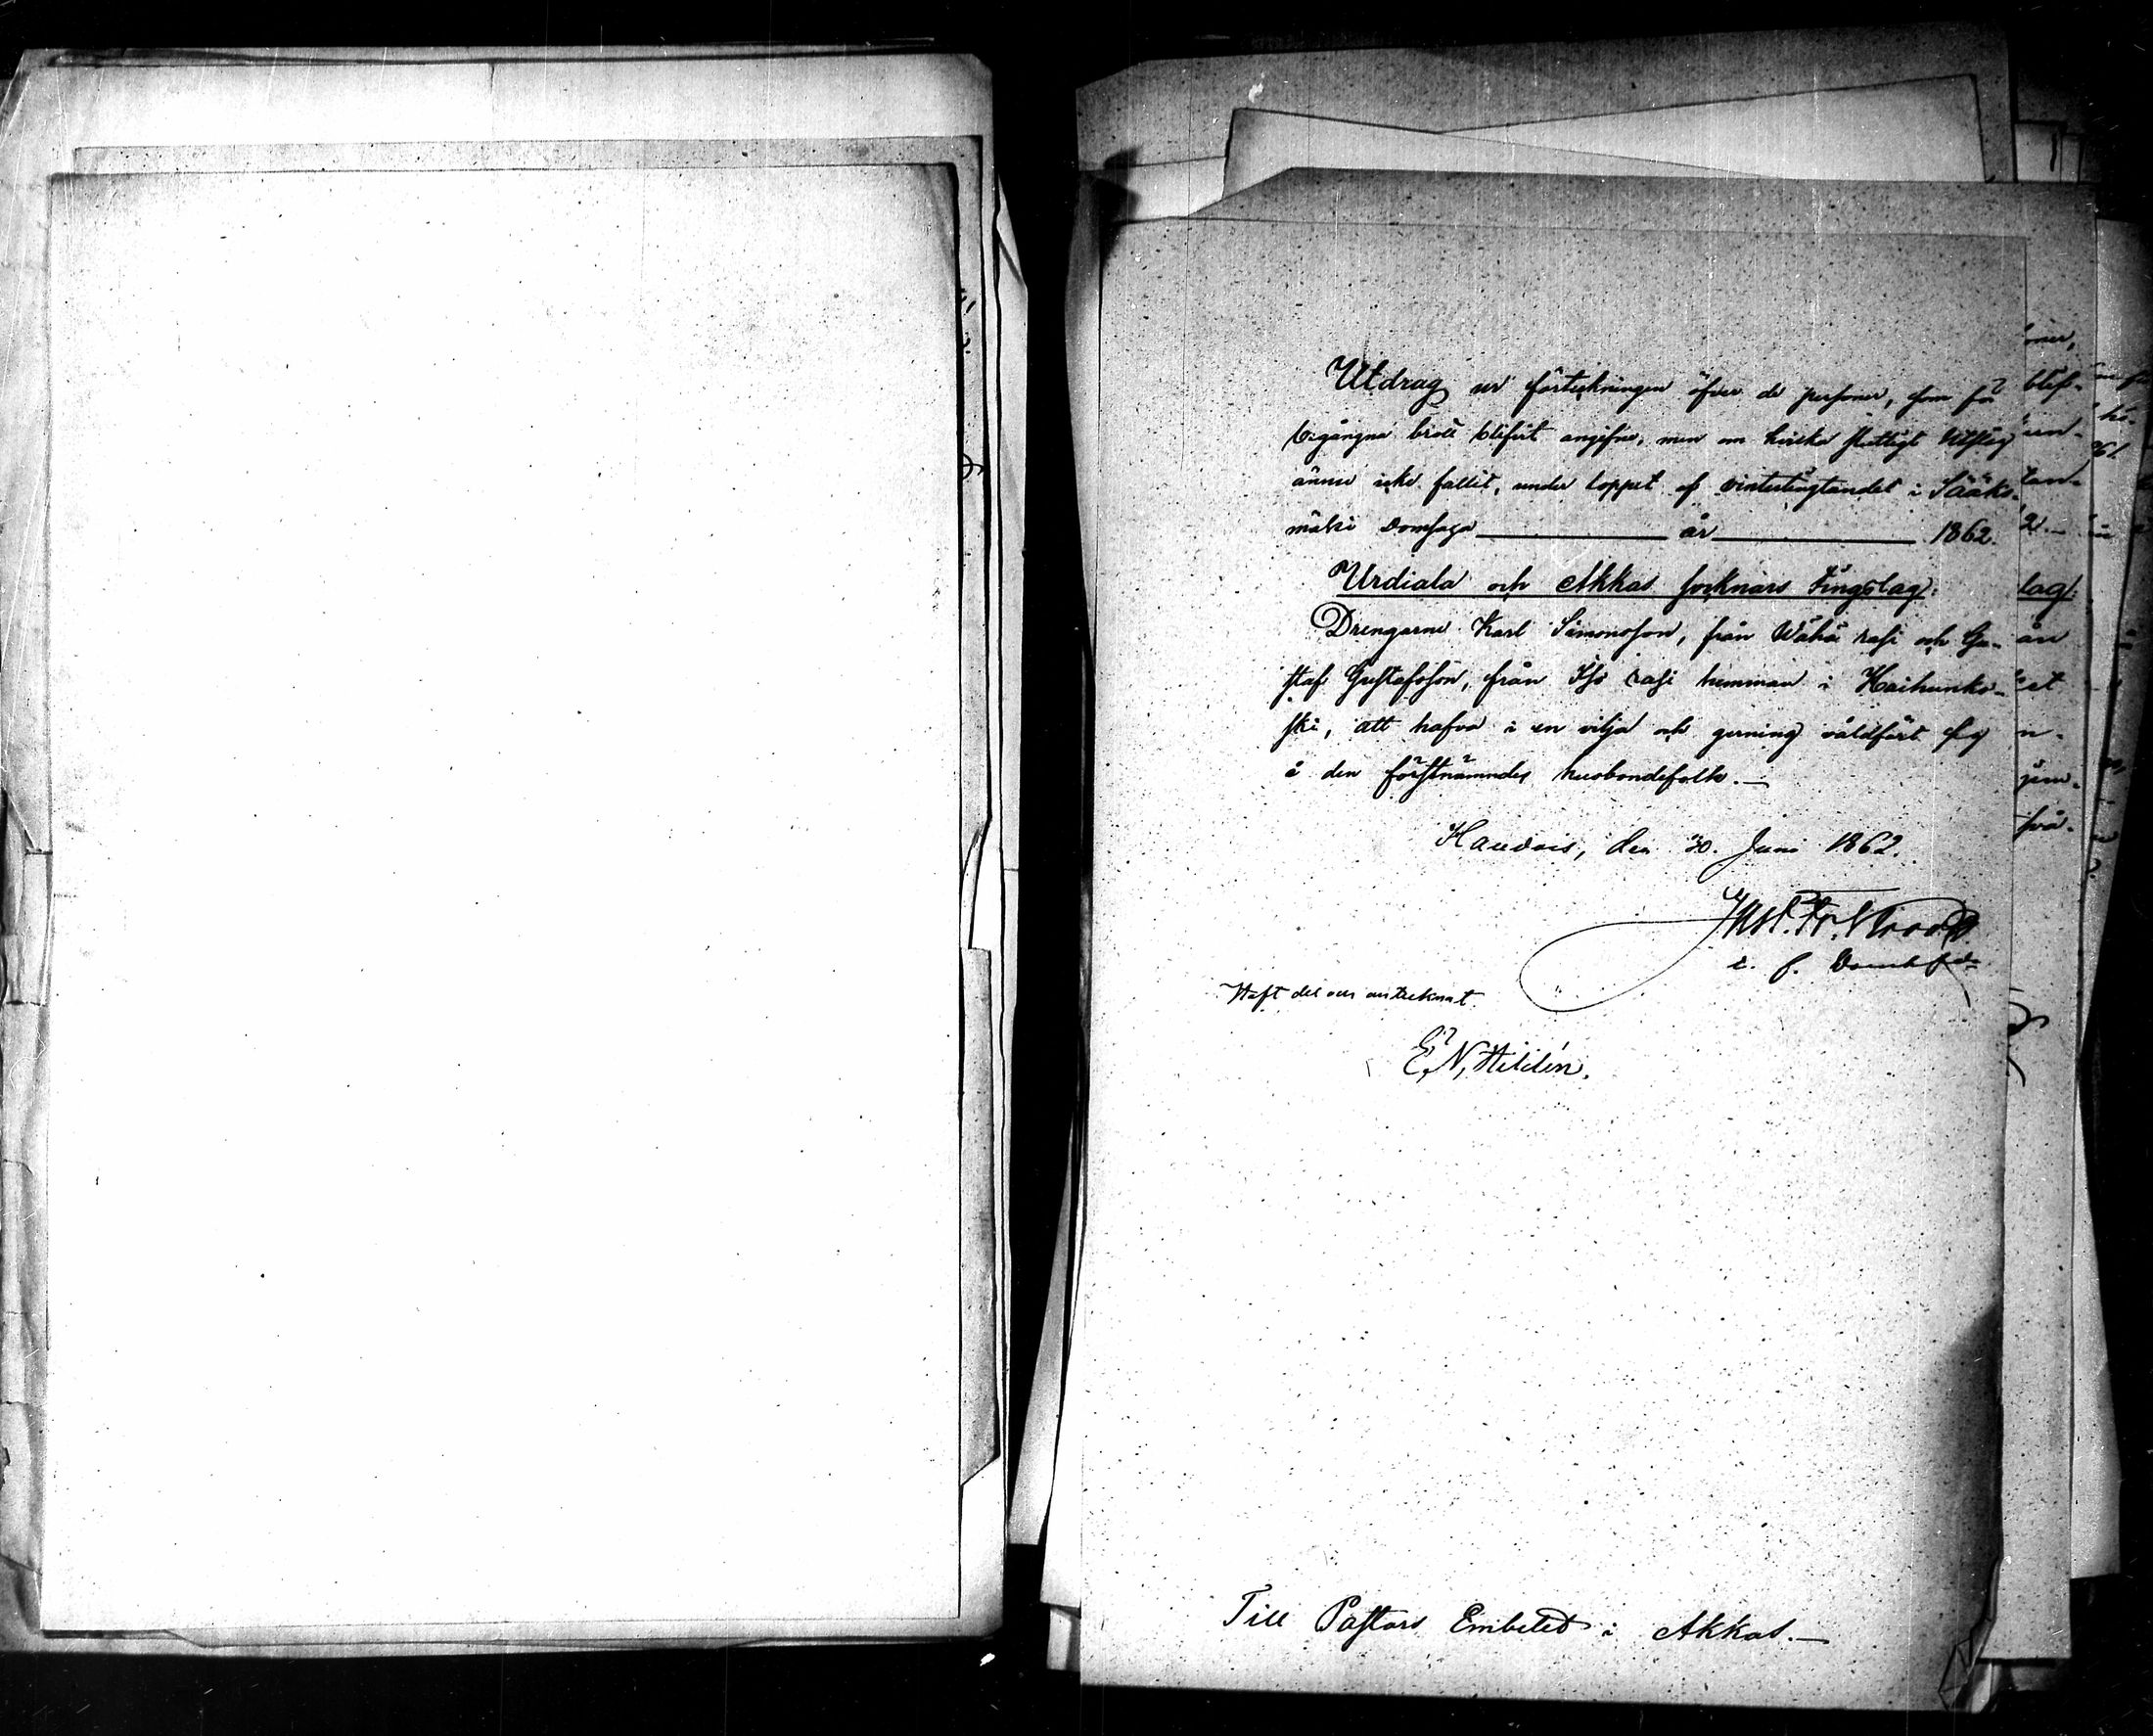 Utdrag ur förteckningen öfver de personer, som för
begångna brott blifvit angifne, men om hvilka slutligt utslag
ännu icke fallit, under loppet af vintertingtandet i Sääks-
mäki Domsaga år 1862.
Urdiala och Akkas socknars Tingslag:
Drengarne Karl Simonsson, från Wähä rasi och Gu-
staf Gustafsson, från Iso rasi hemman i Haihunko-
ski, att hafva i en vilja och gerning våldfört sig
å den förstnämndes husbondefolk.—
Haudois, den 30. Juni 1862.
e. f. Domhfde
Haft del och antecknat
E. N. Hildén.
Till Pastors Embetet i Akkas.—